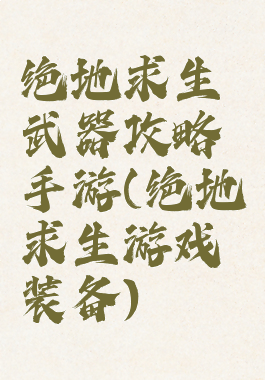 绝地求生
武器攻略
手游(绝地
求生游戏
装备)